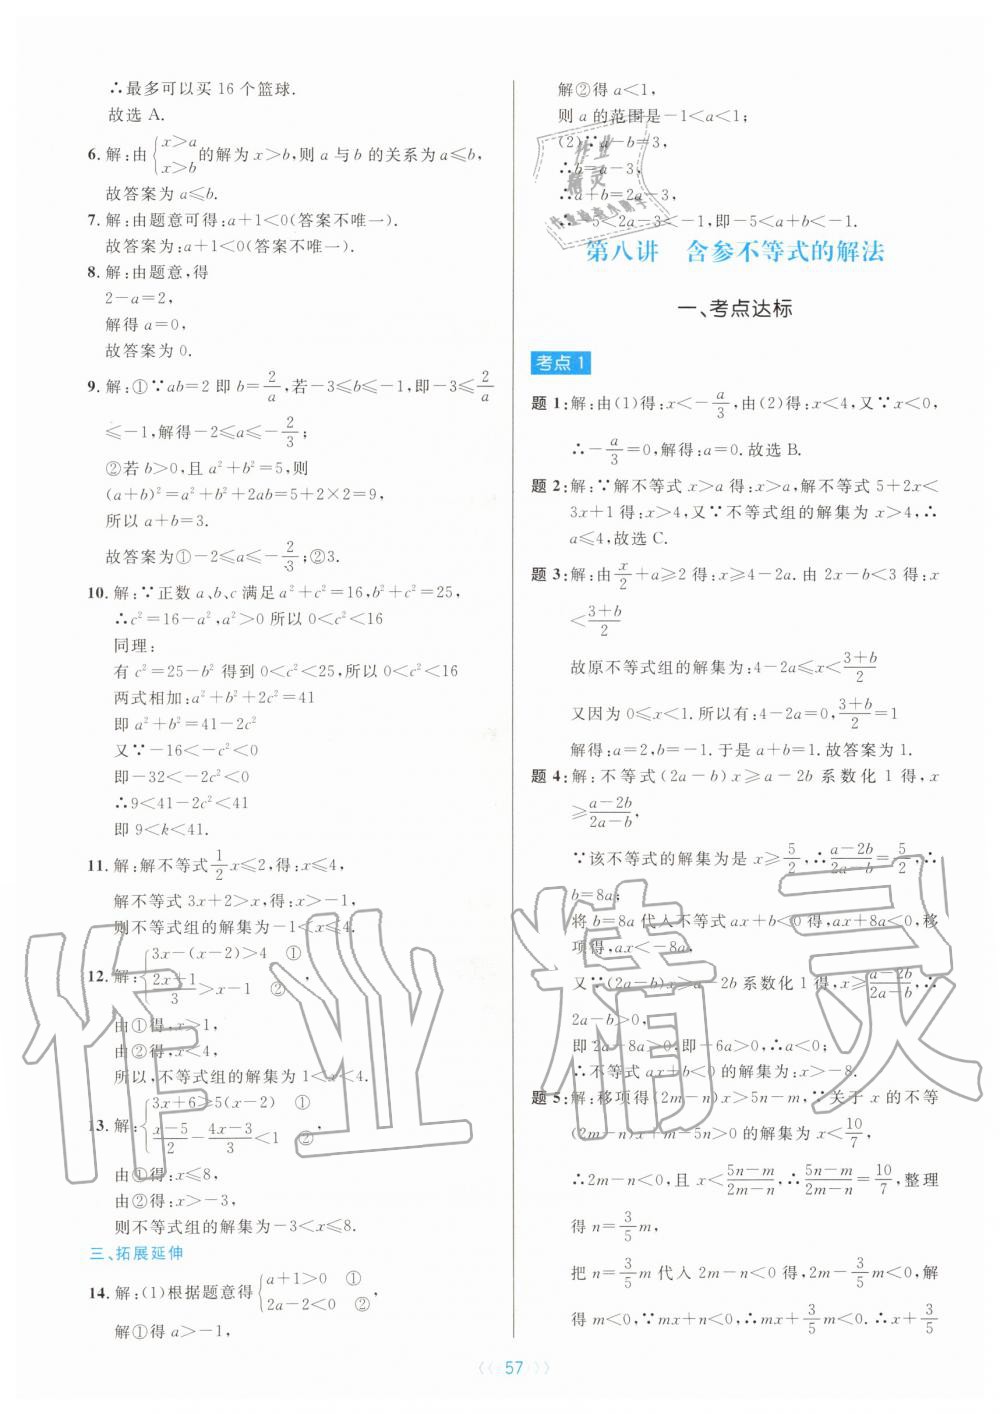 ∴最多可以买 16 个篮球.
故选 A.
6. 解:由{x>a x>b 的解为 x>b,则 a 与 b 的关系为 a≤b,
故答案为 a≤b.
7. 解:由题意可得:a+1<0(答案不唯一).
故答案为:a+1<0(答案不唯一).
8. 解:由题意,得
2-a=2,
解得 a=0,
故答案为 0.
9. 解:①∵ab=2 即 b=2/a,若-3≤b≤-1,即-3≤2/a
≤-1,解得-2≤a≤-2/3;
②若 b>0,且 a²+b²=5,则
(a+b)²=a²+b²+2ab=5+2×2=9,
所以 a+b=3.
故答案为①-2≤a≤-2/3;②3.
10. 解:∵正数 a、b、c 满足 a²+c²=16,b²+c²=25,
∴c²=16-a²,a²>0 所以 0<c²<16
同理:
有 c²=25-b² 得到 0<c²<25,所以 0<c²<16
两式相加:a²+b²+2c²=41
即 a²+b²=41-2c²
又∵-16<-c²<0
即-32<-2c²<0
∴9<41-2c²<41
即 9<k<41.
11. 解:解不等式1/2x≤2,得:x≤4,
解不等式 3x+2>x,得:x>-1,
则不等式组的解集为-1<x≤4.
12. 解:{3x-(x-2)>4 ① (2x+1)/3>x-1 ②,
由①得,x>1,
由②得,x<4,
所以,不等式组的解集为 1<x<4.
13. 解:{3x+6≥5(x-2) ① (x-5)/2-(4x-3)/3<1 ②,
由①得:x≤8,
由②得:x>-3,
则不等式组的解集为-3<x≤8.
三、拓展延伸
14. 解:(1)根据题意得{a+1>0 ① 2a-2<0 ②,
解①得 a>-1,
解②得 a<1,
则 a 的范围是-1<a<1;
(2)∵a-b=3,
∴b=a-3,
∴a+b=2a-3,
∴-5<2a-3<-1,即-5<a+b<-1.
第八讲 含参不等式的解法
一、考点达标
考点 1
题 1:解:由(1)得:x<-a/3,由(2)得:x<4,又∵x<0,
∴-a/3=0,解得:a=0.故选 B.
题 2:解:∵解不等式 x>a 得:x>a,解不等式 5+2x<
3x+1 得:x>4,又∵不等式组的解集为 x>4,∴
a≤4,故选 C.
题 3:解:由x/2+a≥2 得:x≥4-2a.由 2x-b<3 得:x
<(3+b)/2
故原不等式组的解集为:4-2a≤x<(3+b)/2
又因为 0≤x<1.所以有:4-2a=0,(3+b)/2=1
解得:a=2,b=-1.于是 a+b=1.故答案为 1.
题 4:解:不等式(2a-b)x≥a-2b 系数化 1 得,x
≥(a-2b)/(2a-b),
∵该不等式的解集为是 x≥5/2,∴(a-2b)/(2a-b)=5/2,∴
b=8a;
将 b=8a 代入不等式 ax+b<0 得,ax+8a<0,移
项得,ax<-8a,
又∵(2a-b)x≥a-2b 系数化 1 得,x≥(a-2b)/(2a-b),∴
2a-b>0,
即 2a-8a>0,即-6a>0,∴a<0;
∴不等式 ax+b<0 的解集为 x>-8.
题 5:解:移项得(2m-n)x>5n-m,∵关于 x 的不等
(2m-n)x+m-5n>0 的解集为 x<10/7,
∴2m-n<0,且 x<(5n-m)/(2m-n),∴(5n-m)/(2m-n)=10/7,整理
得 n=3/5m,
把 n=3/5m 代入 2m-n<0 得,2m-3/5m<0,解
得 m<0,∵mx+n<0,∴mx+3/5m<0.∴x+3/5
57
作业精灵